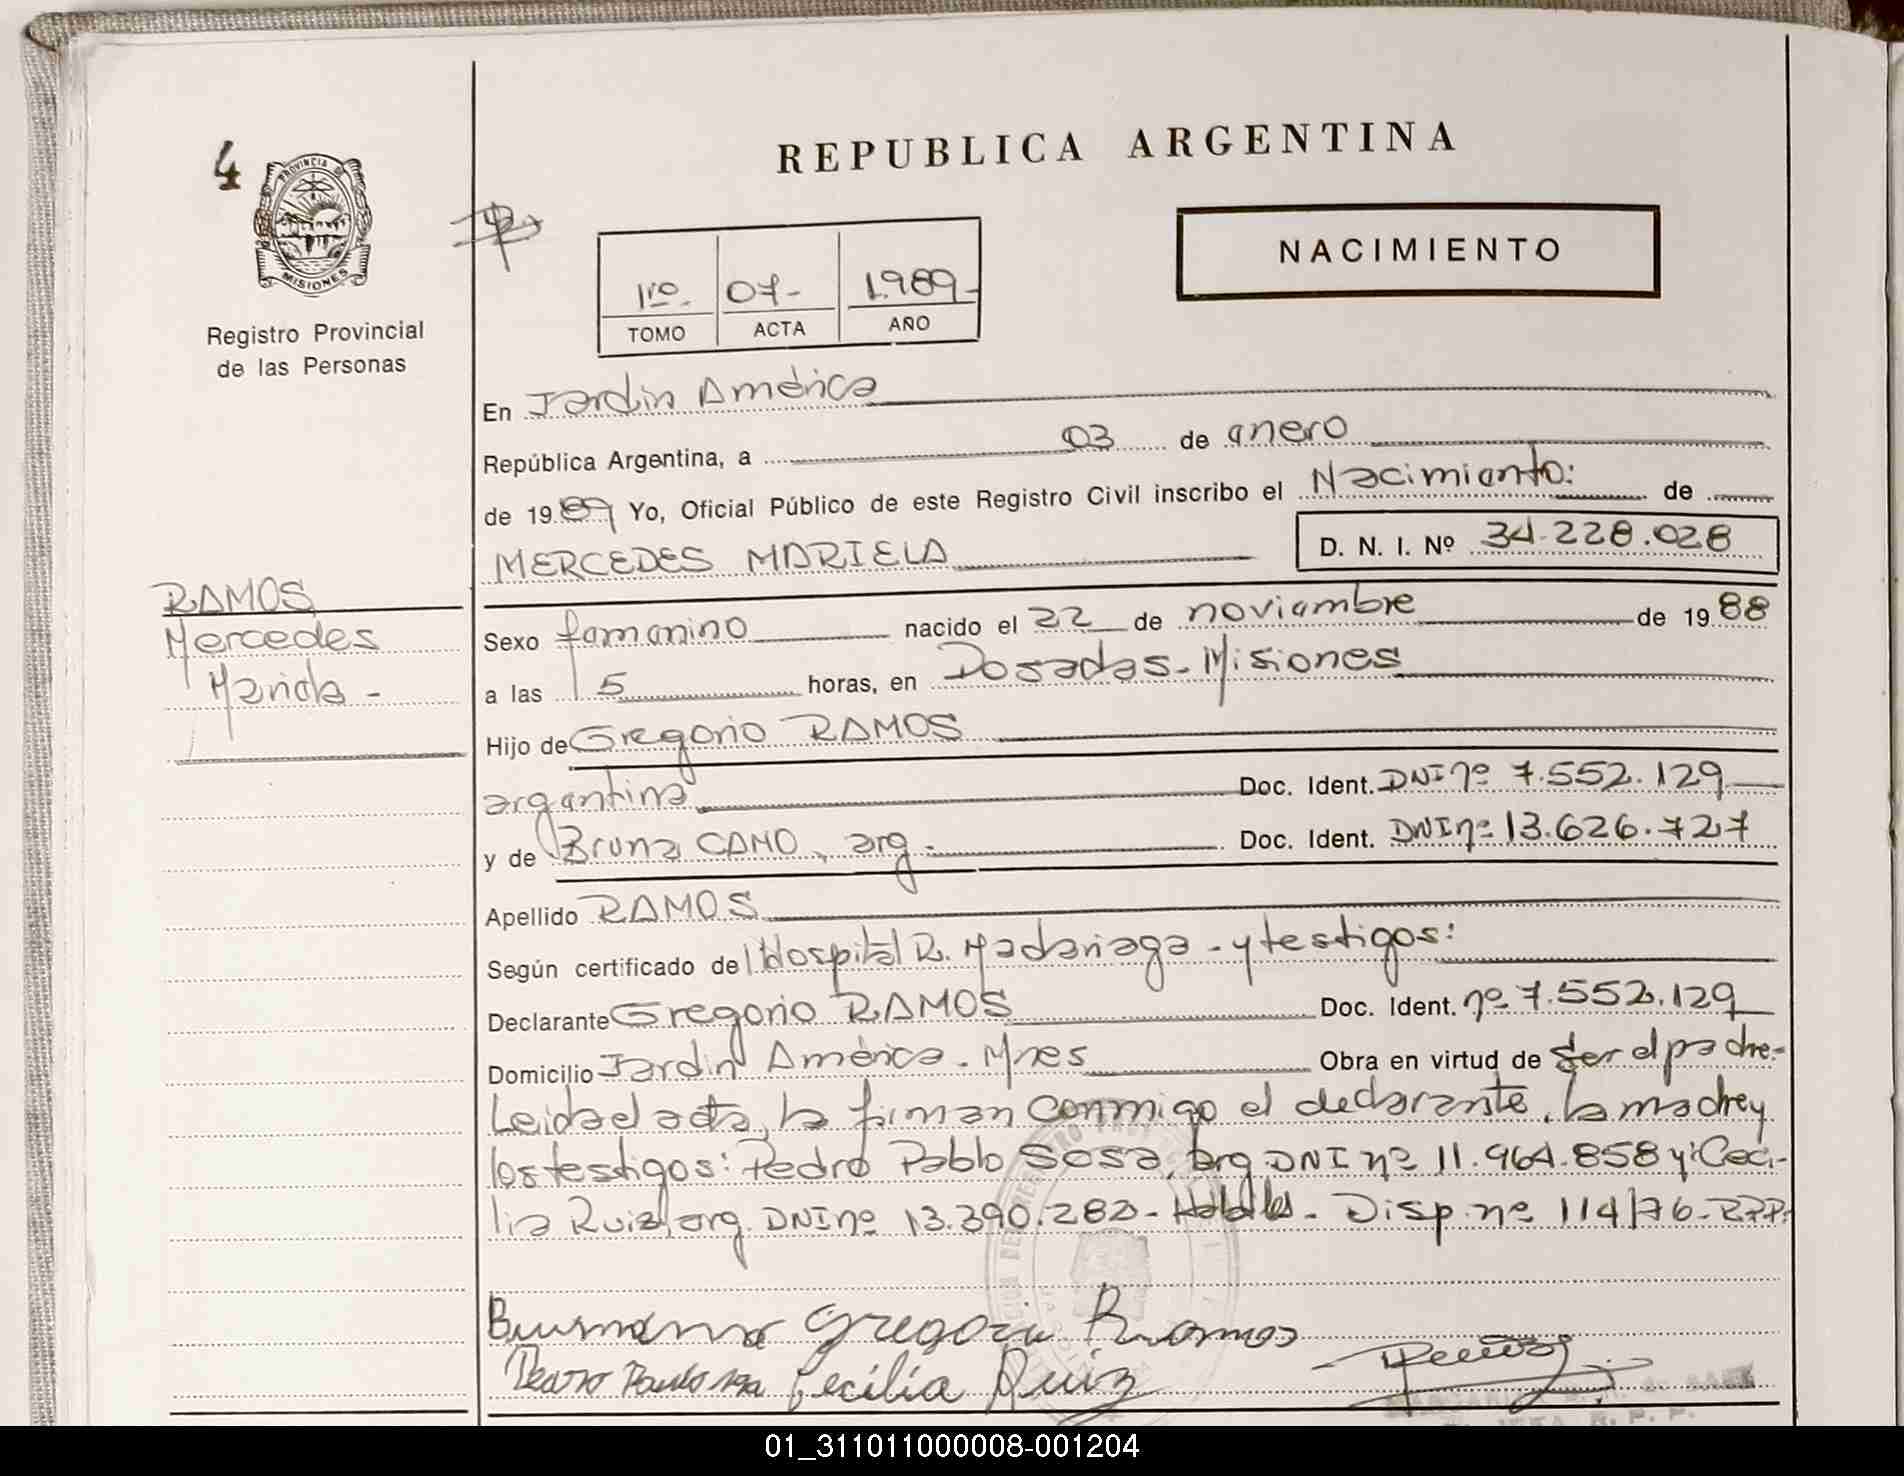 4
PROVINCIA DE
MISIONES
Registro Provincial
de las Personas
REPUBLICA ARGENTINA
NACIMIENTO
1ro. 07- 1.989-
TOMO ACTA AÑO
En Jardin América
República Argentina, a 03 de enero
de 1989 Yo, Oficial Público de este Registro Civil inscribo el Nacimiento: de
MERCEDES MARIELA D. N. I. Nº 34.228.028
RAMOS
Mercedes
Mariela -
Sexo femenino nacido el 22 de noviembre de 1988
a las 15 horas, en Posadas - Misiones
Hijo de Gregorio RAMOS
argentina Doc. Ident. DNI nº 7.552.129
y de Bruna CANO, arg. Doc. Ident. DNI nº 13.626.727
Apellido RAMOS
Según certificado del Hospital R. Madariaga - y testigos:
Declarante Gregorio RAMOS Doc. Ident. nº 7.552.129
Domicilio Jardin América - Mnes Obra en virtud de ser el padre.-
Leida el acta, la firman conmigo el declarante, la madre y
los testigos: Pedro Pablo Sosa, arg. DNI nº 11.964.858 y: Ceci-
lia Ruiz, arg. DNI nº 13.390.282 - Disp. nº 114/76 - R.P.P.
Gregorio Ramos
Cecilia Ruiz
R. P. P.
01_311011000008-001204